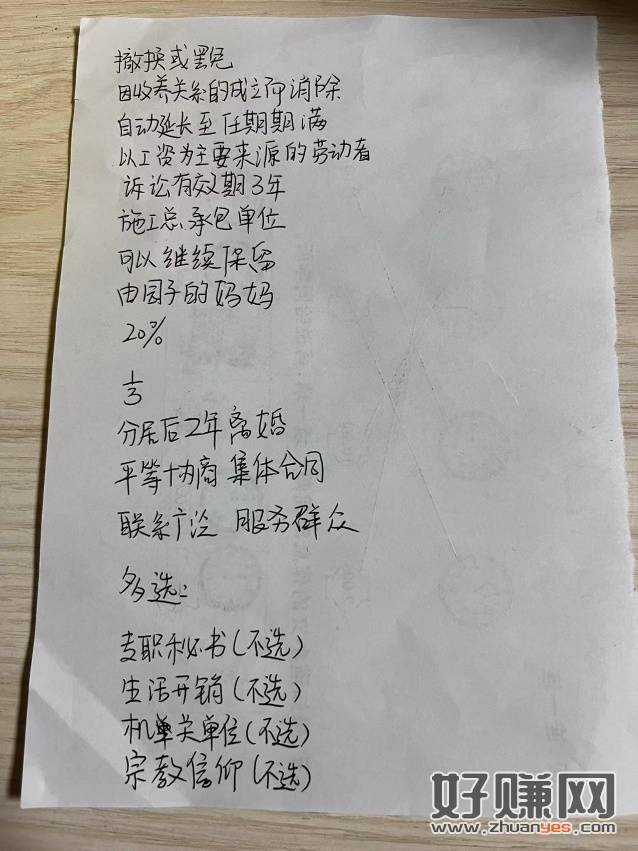 撤换或罢免
因收养关系的成立而消除
自动延长至任期期满
以工资为主要来源的劳动者
诉讼有效期3年
施工总承包单位
可以继续保留
由园子的妈妈
20%
1/3
分居后2年离婚
平等协商 集体合同
联系广泛 服务群众
多选:
专职秘书(不选)
生活开销(不选)
机关单位(不选)
宗教信仰(不选)
好赚网
www.zhuanyes.com